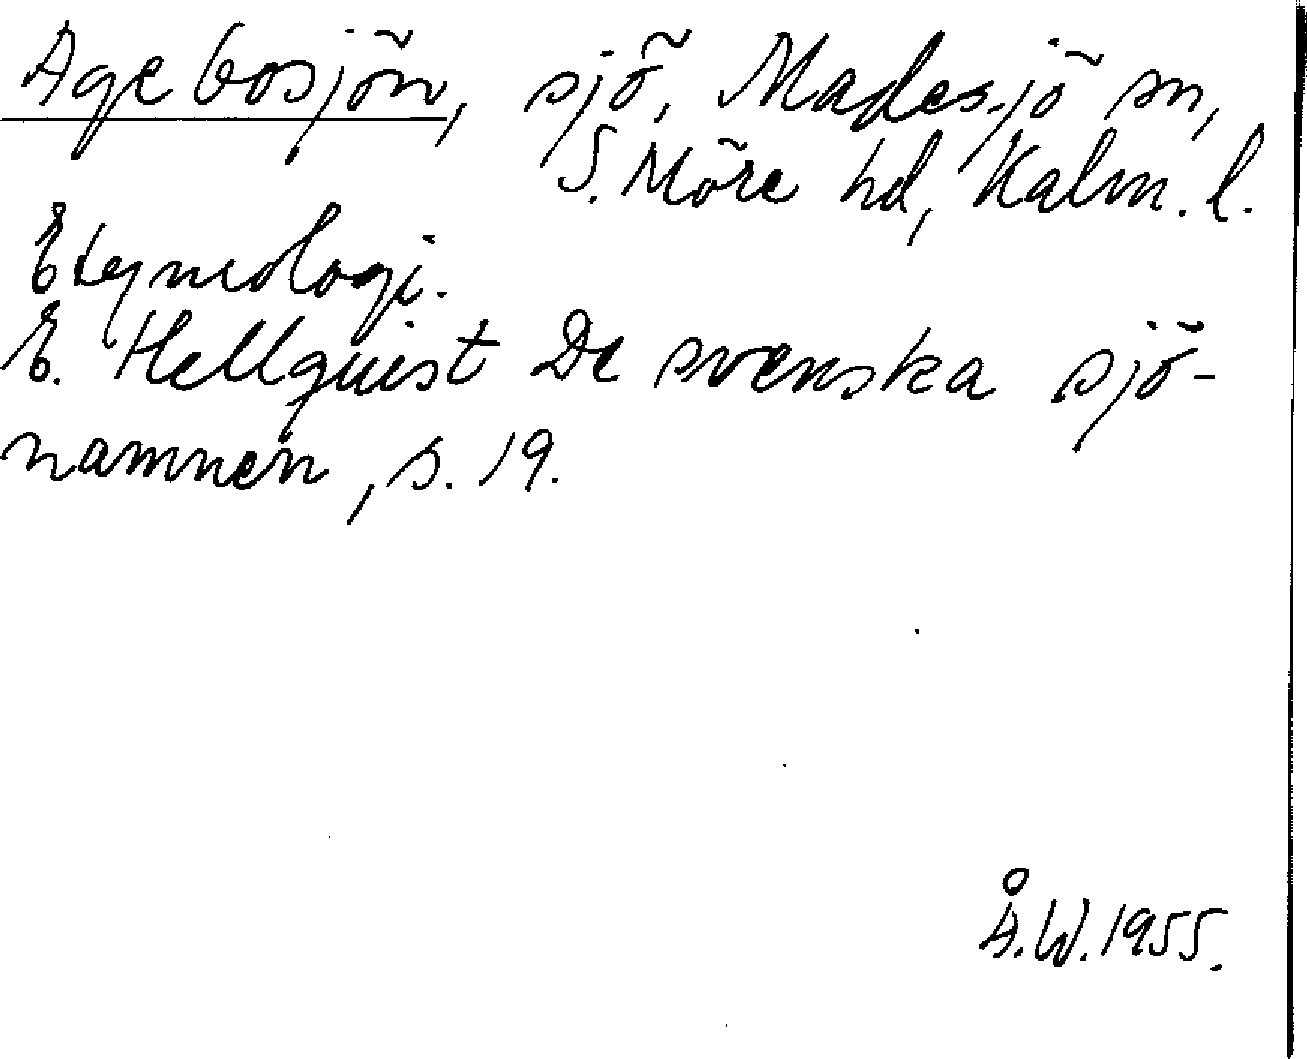 Agebosjön, sjö, Madesjö sn,
S. Möre hd, Kalm. l.
Etymologi.
E. Hellquist De svenska sjö-
namnen, s. 19.
Å.W. 1955.